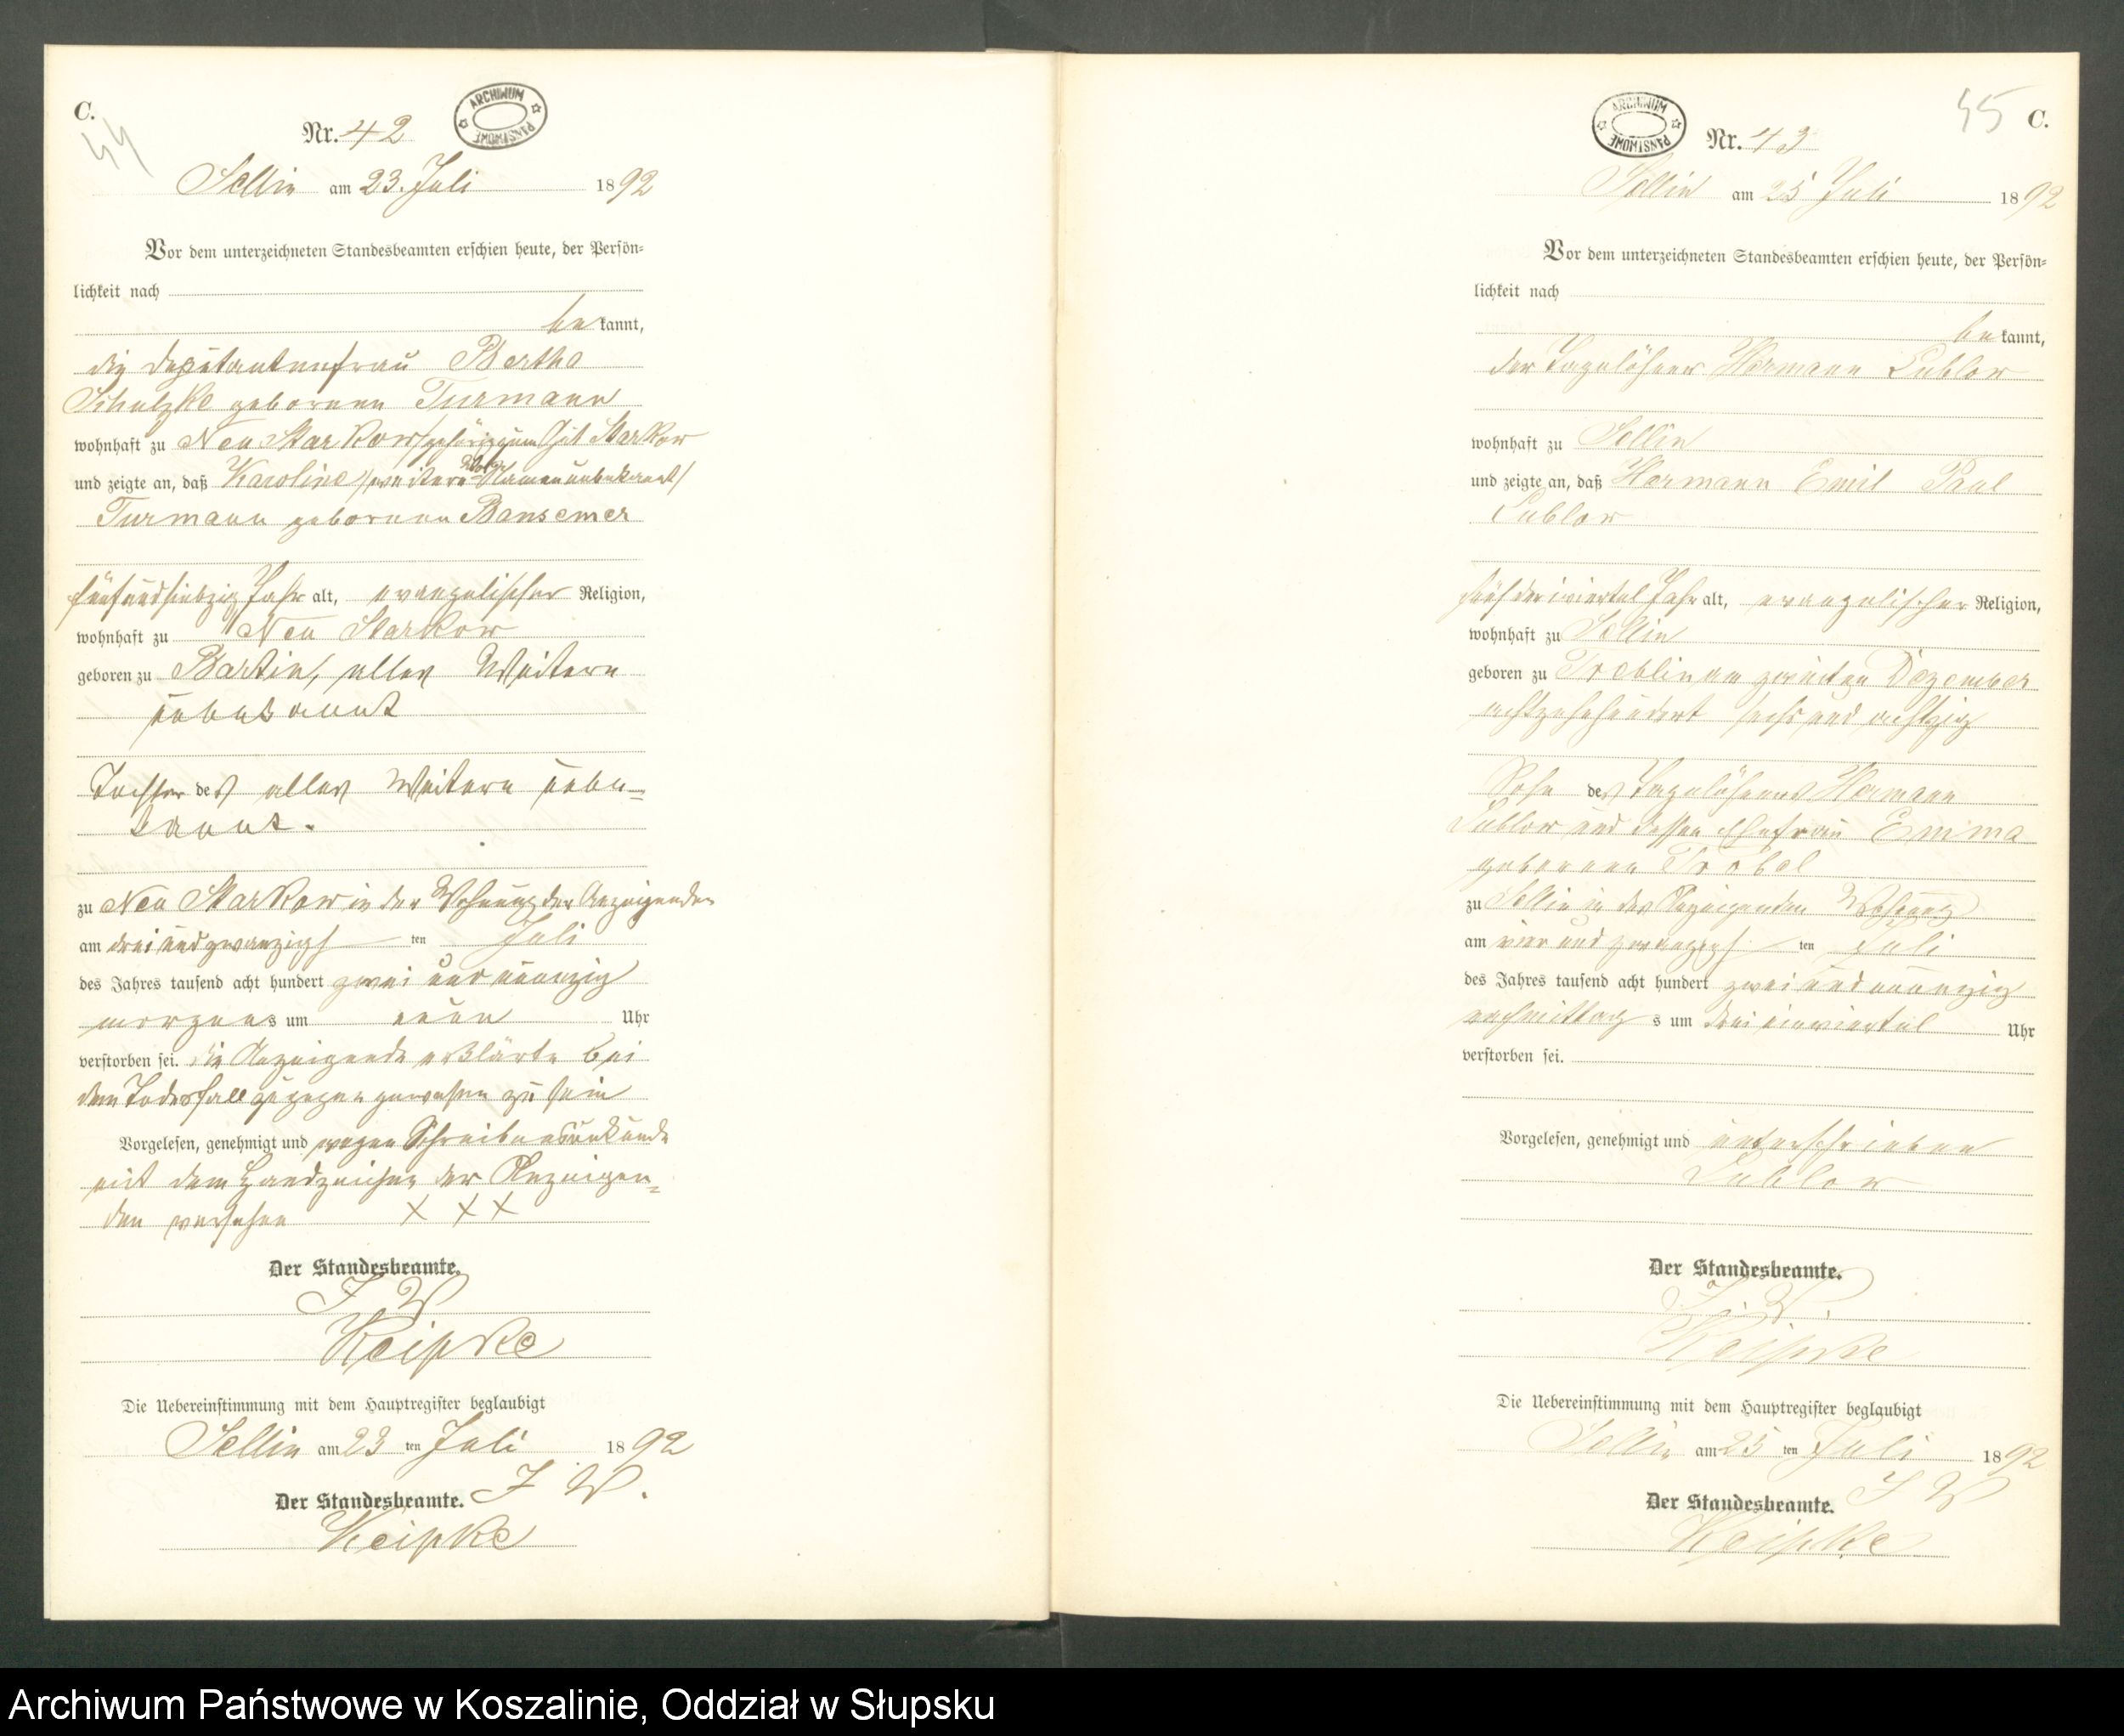 C.
44
Nr. 42
ARCHIWUM PAŃSTWOWE
Sellin am 23. Juli 1892
Vor dem unterzeichneten Standesbeamten erschien heute, der Persön-
lichkeit nach
bekannt,
die Deputantenfrau Bertha
Schulzke geborenen Turmann
wohnhaft zu Neu Starkow /gehörig zum Gut Starkow
und zeigte an, daß Karoline /weitere Namen unbekannt/
Turmann geborenen Bansemer
fünfundsiebzig Jahr alt, evangelischer Religion,
wohnhaft zu Neu Starkow
geboren zu Bartin, alles Weitere
unbekannt
Tochter des alles Weitere unbe-
kannt.
zu Neu Starkow in der Wohnung der Anzeigenden
am drei und zwanzigsten Juli
des Jahres tausend acht hundert zwei und neunzig
morgens um neun Uhr
verstorben sei. Die Anzeigende erklärte bei
dem Todesfall zugegen gewesen zu sein
Vorgelesen, genehmigt und wegen Schreibensunkunde
mit dem Handzeichen der Anzeigen-
den versehen X X X
Der Standesbeamte.
J V
Keipke
Die Uebereinstimmung mit dem Hauptregister beglaubigt
Sellin am 23 ten Juli 1892
Der Standesbeamte. J V.
Keipke
45 C.
ARCHIWUM PAŃSTWOWE
Nr. 43
Sellin am 25 Juli 1892
Vor dem unterzeichneten Standesbeamten erschien heute, der Persön-
lichkeit nach
bekannt,
der Tagelöhner Hermann Lublow
wohnhaft zu Sellin
und zeigte an, daß Hermann Emil Paul
Lublow
fünf dreiviertel Jahr alt, evangelischer Religion,
wohnhaft zu Sellin
geboren zu Treblin am zweiten Dezember
achtzehnhundert sechs und achtzig
Sohn des Tagelöhners Hermann
Lublow und dessen Ehefrau Emma
geborenen
zu Sellin in des Anzeigenden Wohnung
am vier und zwanzigsten Juli
des Jahres tausend acht hundert zwei und neunzig
nachmittags um drei einviertel Uhr
verstorben sei.
Vorgelesen, genehmigt und unterschrieben
Lublow
Der Standesbeamte.
J. V.
Keipke
Die Uebereinstimmung mit dem Hauptregister beglaubigt
Sellin am 25 ten Juli 1892
Der Standesbeamte. J V
Keipke
Archiwum Państwowe w Koszalinie, Oddział w Słupsku